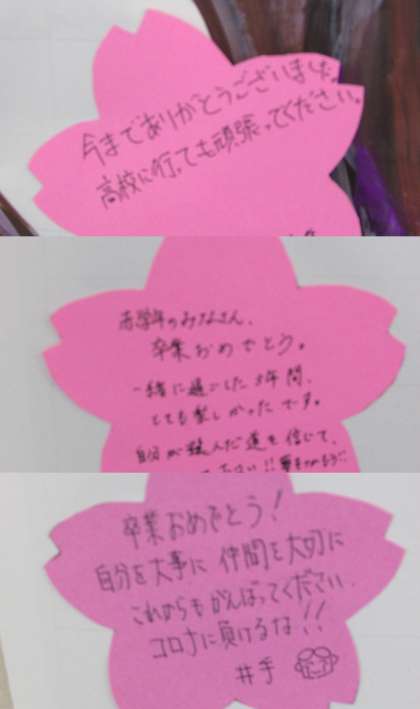 今までありがとうございました。
高校に行っても頑張ってください。
赤学年のみなさん、
卒業おめでとう。
一緒に過ごした3年間、
とても楽しかったです。
自分が選んだ道を信じて、
ださい!!夢をつかもう!!
卒業おめでとう!
自分を大事に 仲間を大切に
これからもがんばってください。
コロナに負けるな!!
井手